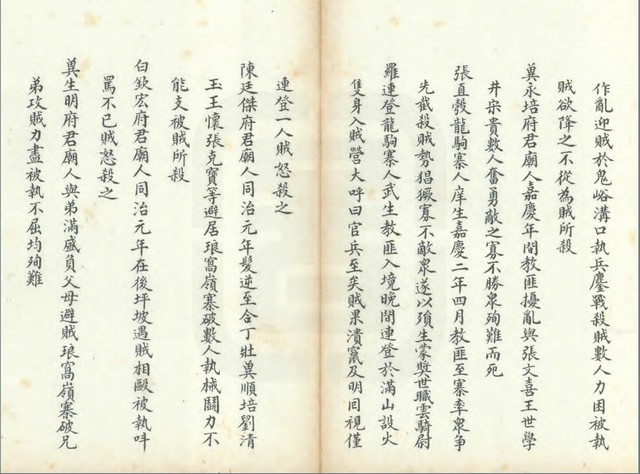 作亂迎賊於鬼峪溝口執兵鏖戰殺賊數人力困被執
賊欲降之不從為賊所殺
莫永培府君廟人嘉慶年間教匪擾亂與張文喜王世學
井宗貴數人奮勇敵之寡不勝衆殉難而死
張直㝅龍駒寨人庠生嘉慶二年四月教匪至寨率衆争
先截殺賊勢猖獗寡不敵衆遂以殞生蒙獎世職雲騎尉
羅連登龍駒寨人武生教匪入境晚間連登於滿山設火
隻身入賊營大呼曰官兵至矣賊果潰竄及明回視僅
連登一人賊怒殺之
陳廷傑府君廟人同治元年髮逆至合丁壯莫順培劉清
玉王懷張克寶等避居琅窩嶺寨破數人執械鬭力不
能支被賊所殺
白欽宏府君廟人同治元年在後坪坡遇賊相毆被執吽
罵不已賊怒殺之
莫生明府君廟人與弟滿盛負父母避賊琅窩嶺寨破兄
弟攻賊力盡被執不屈均殉難